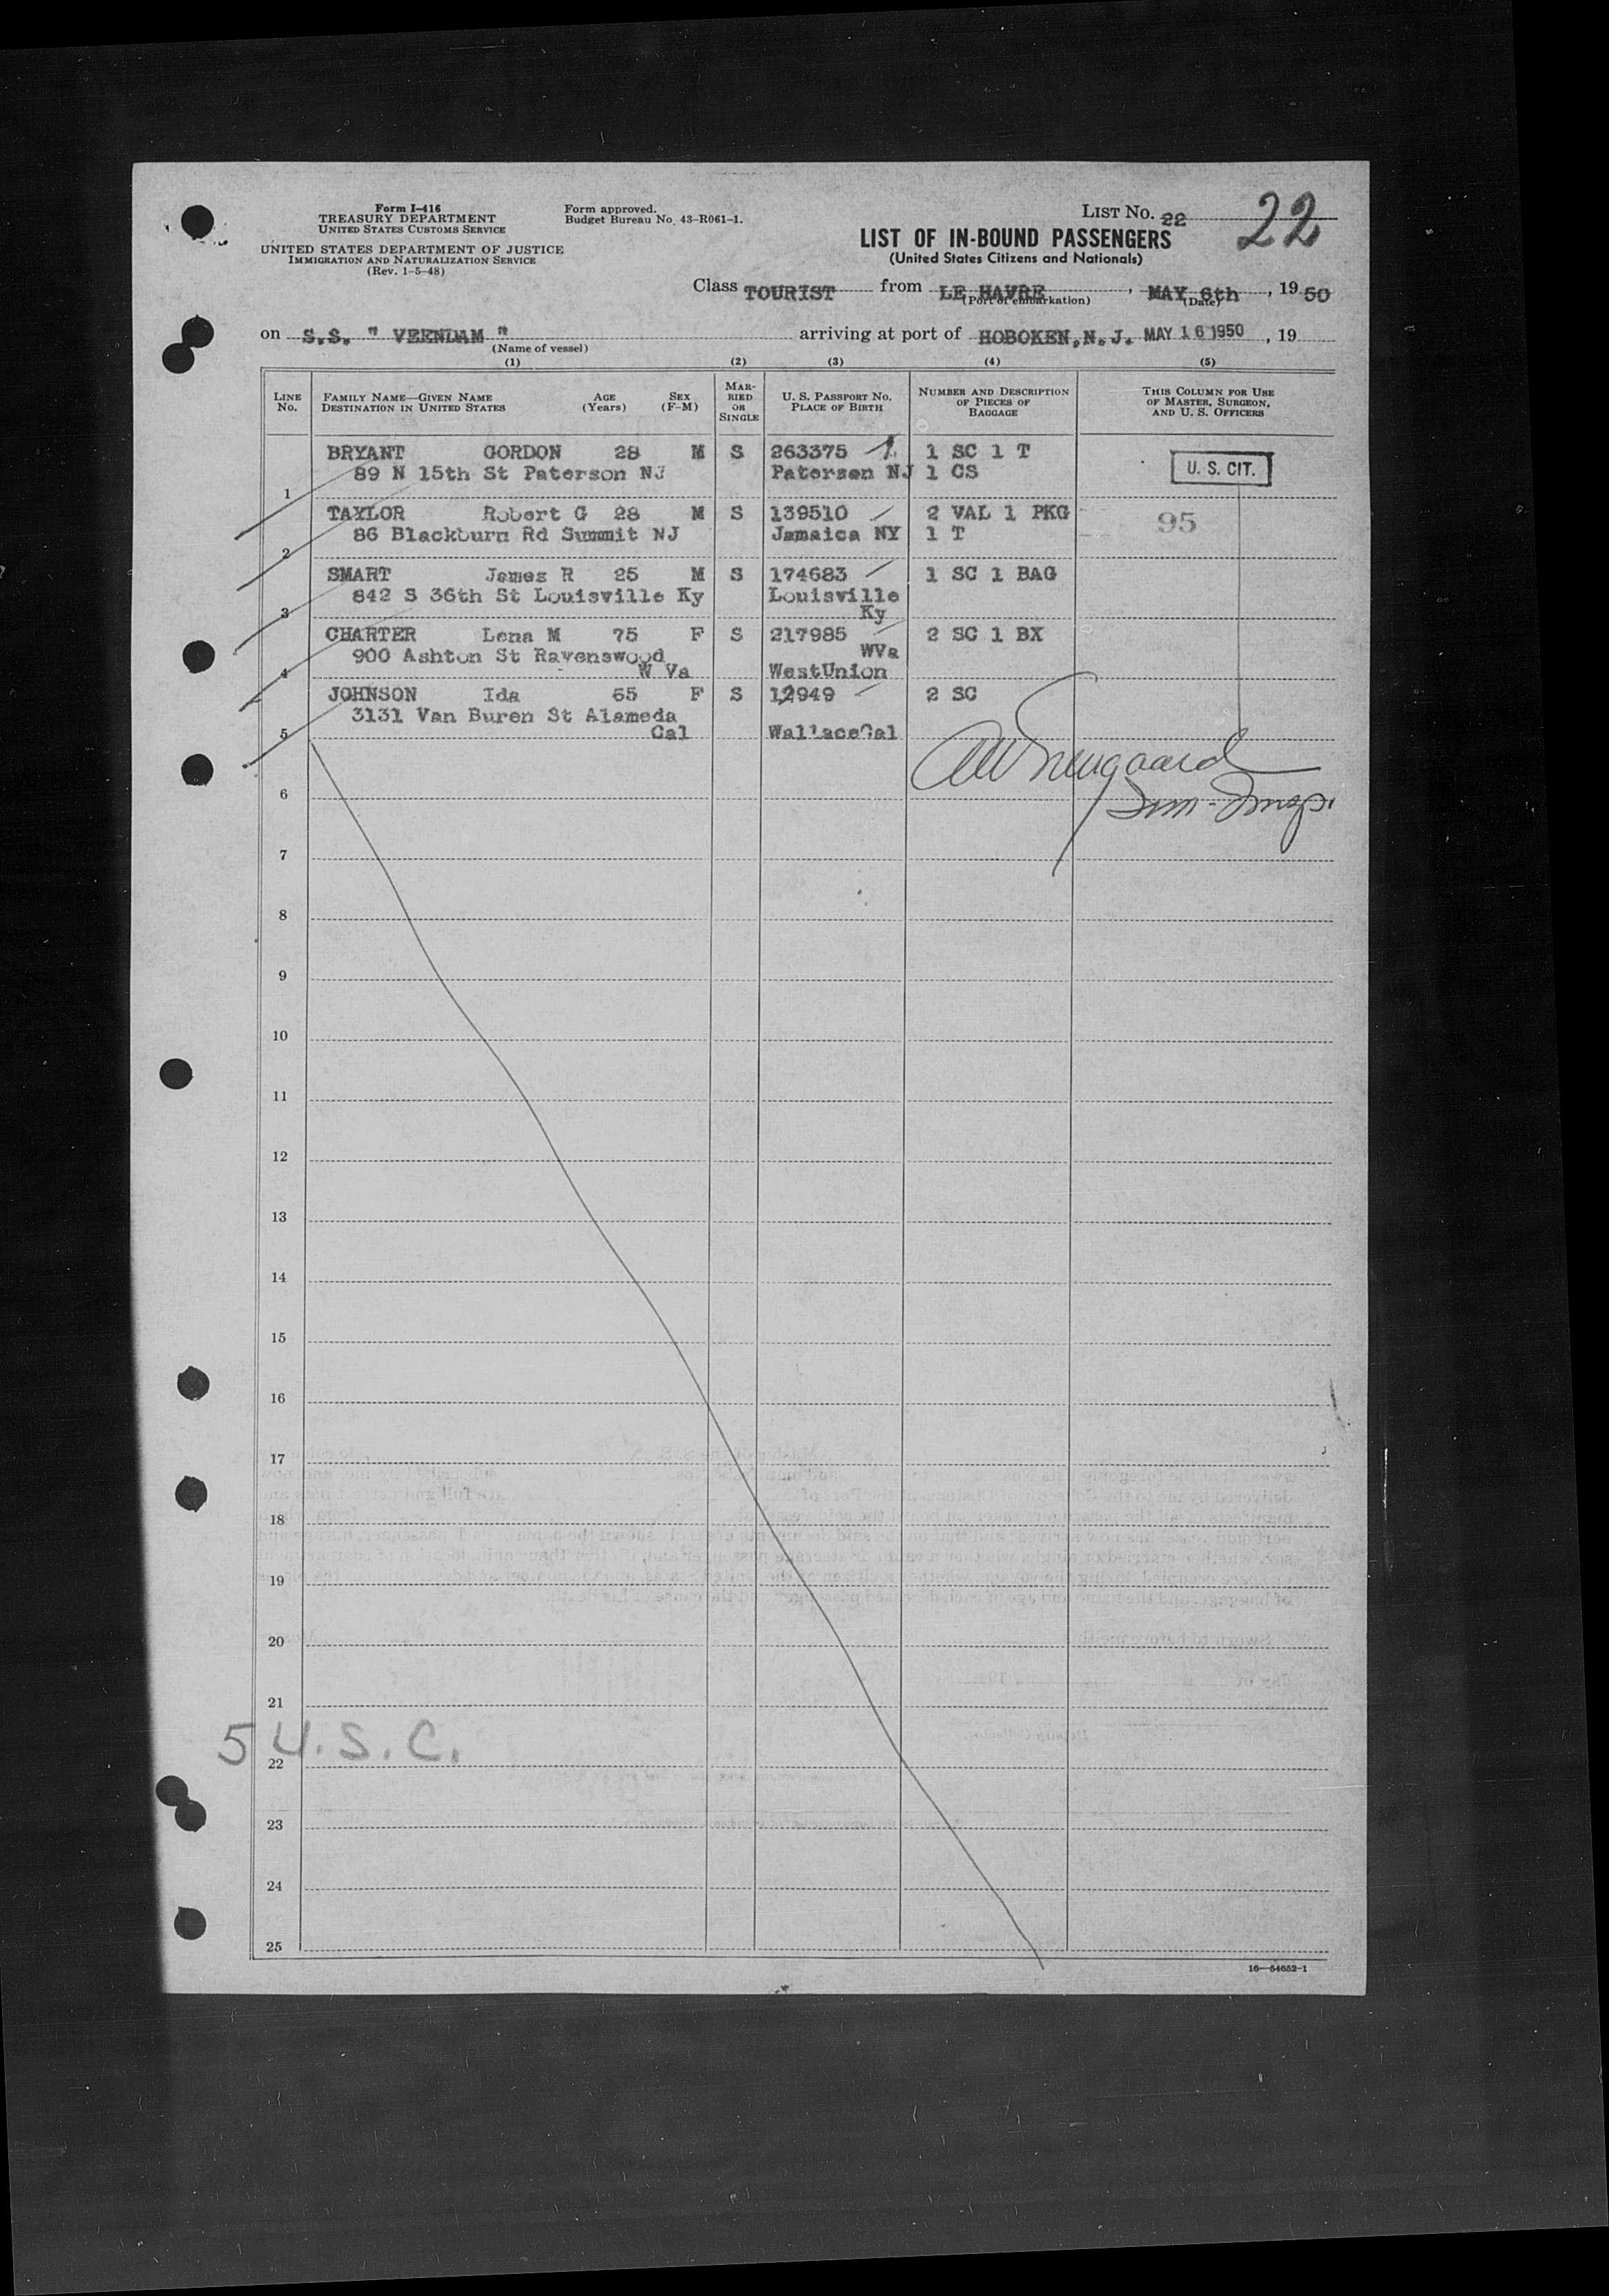 Form I-416
TREASURY DEPARTMENT
UNITED STATES CUSTOMS SERVICE
UNITED STATES DEPARTMENT OF JUSTICE
IMMIGRATION AND NATURALIZATION SERVICE
(Rev. 1-5-48)
Form approved.
Budget Bureau No. 43-R061-1.
LIST No. 22 22
LIST OF IN-BOUND PASSENGERS
(United States Citizens and Nationals)
Class TOURIST from LE HAVRE, MAY 6th, 19 50
(Port of embarkation) (Date)
on S.S. " VEENDAM " arriving at port of HOBOKEN, N.J. MAY 16 1950, 19
(Name of vessel)
(1) (2) (3) (4) (5)
LINE No.
FAMILY NAME—GIVEN NAME AGE SEX
DESTINATION IN UNITED STATES (Years) (F-M)
MARRIED OR SINGLE
U. S. PASSPORT NO.
PLACE OF BIRTH
NUMBER AND DESCRIPTION
OF PIECES OF
BAGGAGE
THIS COLUMN FOR USE
OF MASTER, SURGEON,
AND U. S. OFFICERS
BRYANT GORDON 28 M S 263375 1 SC 1 T
89 N 15th St Paterson NJ Paterson NJ 1 CS U. S. CIT.
1
TAYLOR Robert G 28 M S 139510 2 VAL 1 PKG 95
86 Blackburn Rd Summit NJ Jamaica NY 1 T
2
SMART James R 25 M S 174683 1 SC 1 BAG
842 S 36th St Louisville Ky Louisville
3 Ky
CHARTER Lena M 75 F S 217985 2 SC 1 BX
900 Ashton St Ravenswood WVa
4 W Va WestUnion
JOHNSON Ida 65 F S 12949 2 SC
3131 Van Buren St Alameda
5 Cal WallaceCal
6
7
8
9
10
11
12
13
14
15
16
17
18
19
20
21
5 U.S.C.
22
23
24
25
16—54652-1